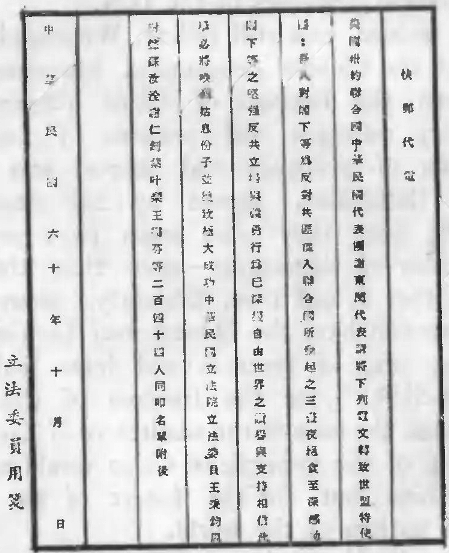 快郵代電
美國紐約聯合國中華民國代表團謝東閔代表請將下列電文轉致世盟特使
團：吾人對閣下等為反對共匪進入聯合國所發起之三晝夜絕食至深感動
閣下等之堅強反共立場與義勇行為已深獲自由世界之讚譽與支持相信此
舉必將喚醒姑息份子並獲致極大成功中華民國立法院立法委員王秉鈞
鄧仁釗葉叶琹王等二百四十四人同叩名單附後
中華民國六十年十月　日
立法委員用箋